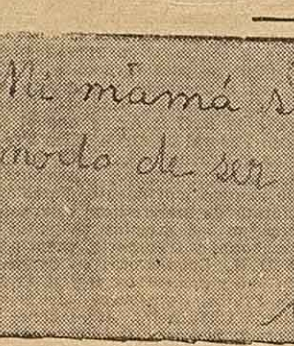 Mi mamá s
modo de ser